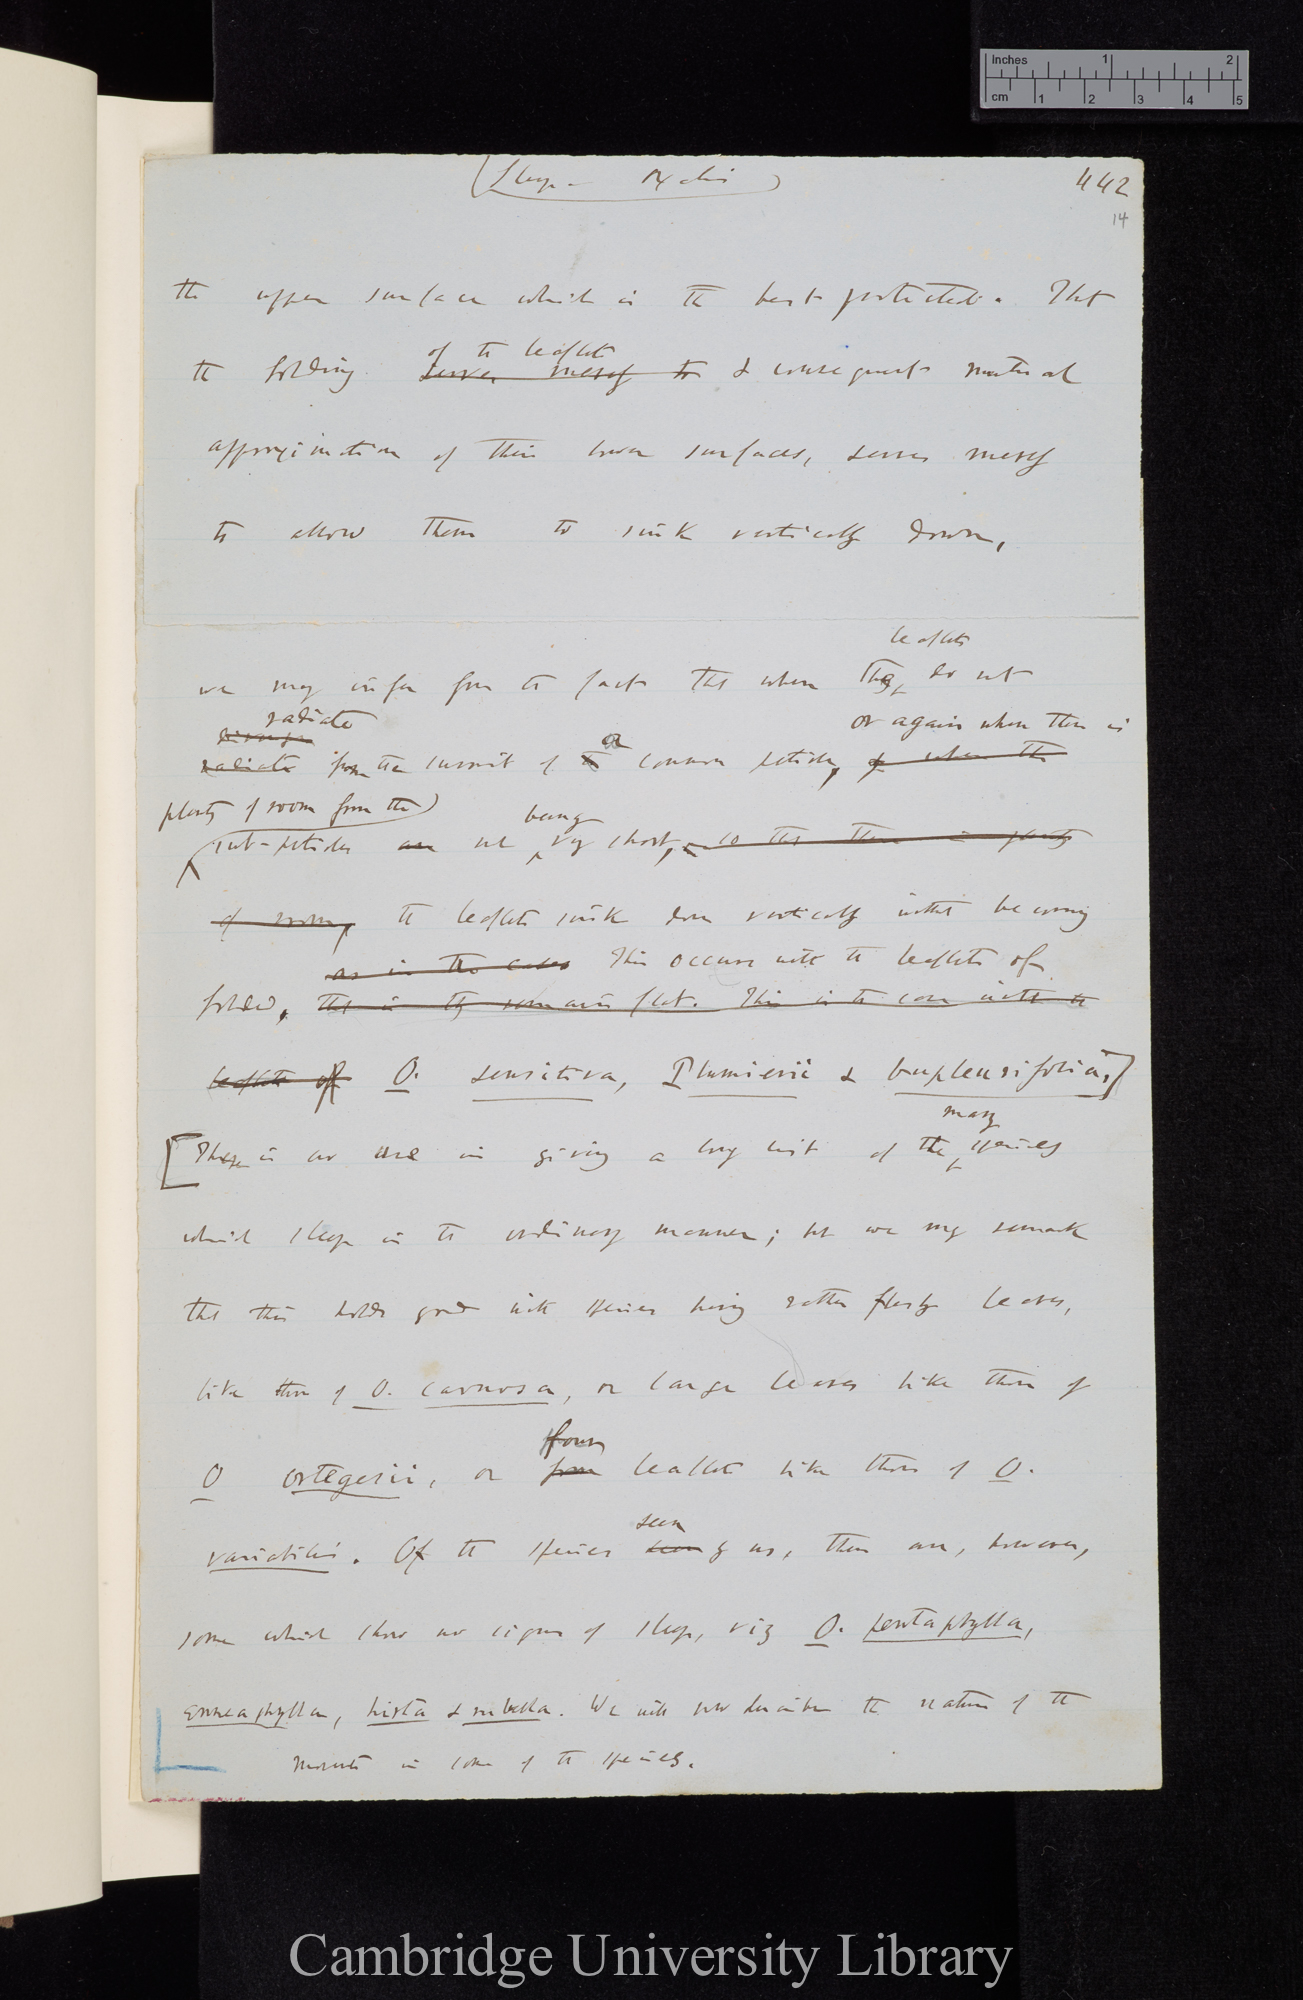 Inches 1 2
cm 1 2 3 4 5
(Sleep — Oxalis)
442
14
the upper surface which is the best protected. That
of the leaflets
the folding serves merely to & consequent mutual
approximation of their lower surfaces, serves merely
to allow them to sink vertically down,
leaflets
we may infer from the fact that when they do not
radiate or again when there is
radiate from the summit of the a common petiole, or when the
plenty of room from the
being
sub-petioles are not very short, so that there is plenty
of room, the leaflets sink down vertically without becoming
as in the cases This occurs with the leaflets of
folded, that is they remain flat. This is the case with the
leaflets of O. sensitiva, Plumierii & bupleurifolia.]
many
[There is no use in giving a long list of the species
which sleep in the ordinary manner; but we may remark
that this holds good with species having rather fleshy leaves,
like those of O. carnosa, or large leaves like those of
four
O ortegesii, or four leaflets like those of O.
seen
variabilis. Of the species seen by us, there are, however,
some which show no signs of sleep, viz O. pentaphylla,
enneaphylla, hirta & rubella. We will now describe the nature of the
movements in some of the species.
Cambridge University Library